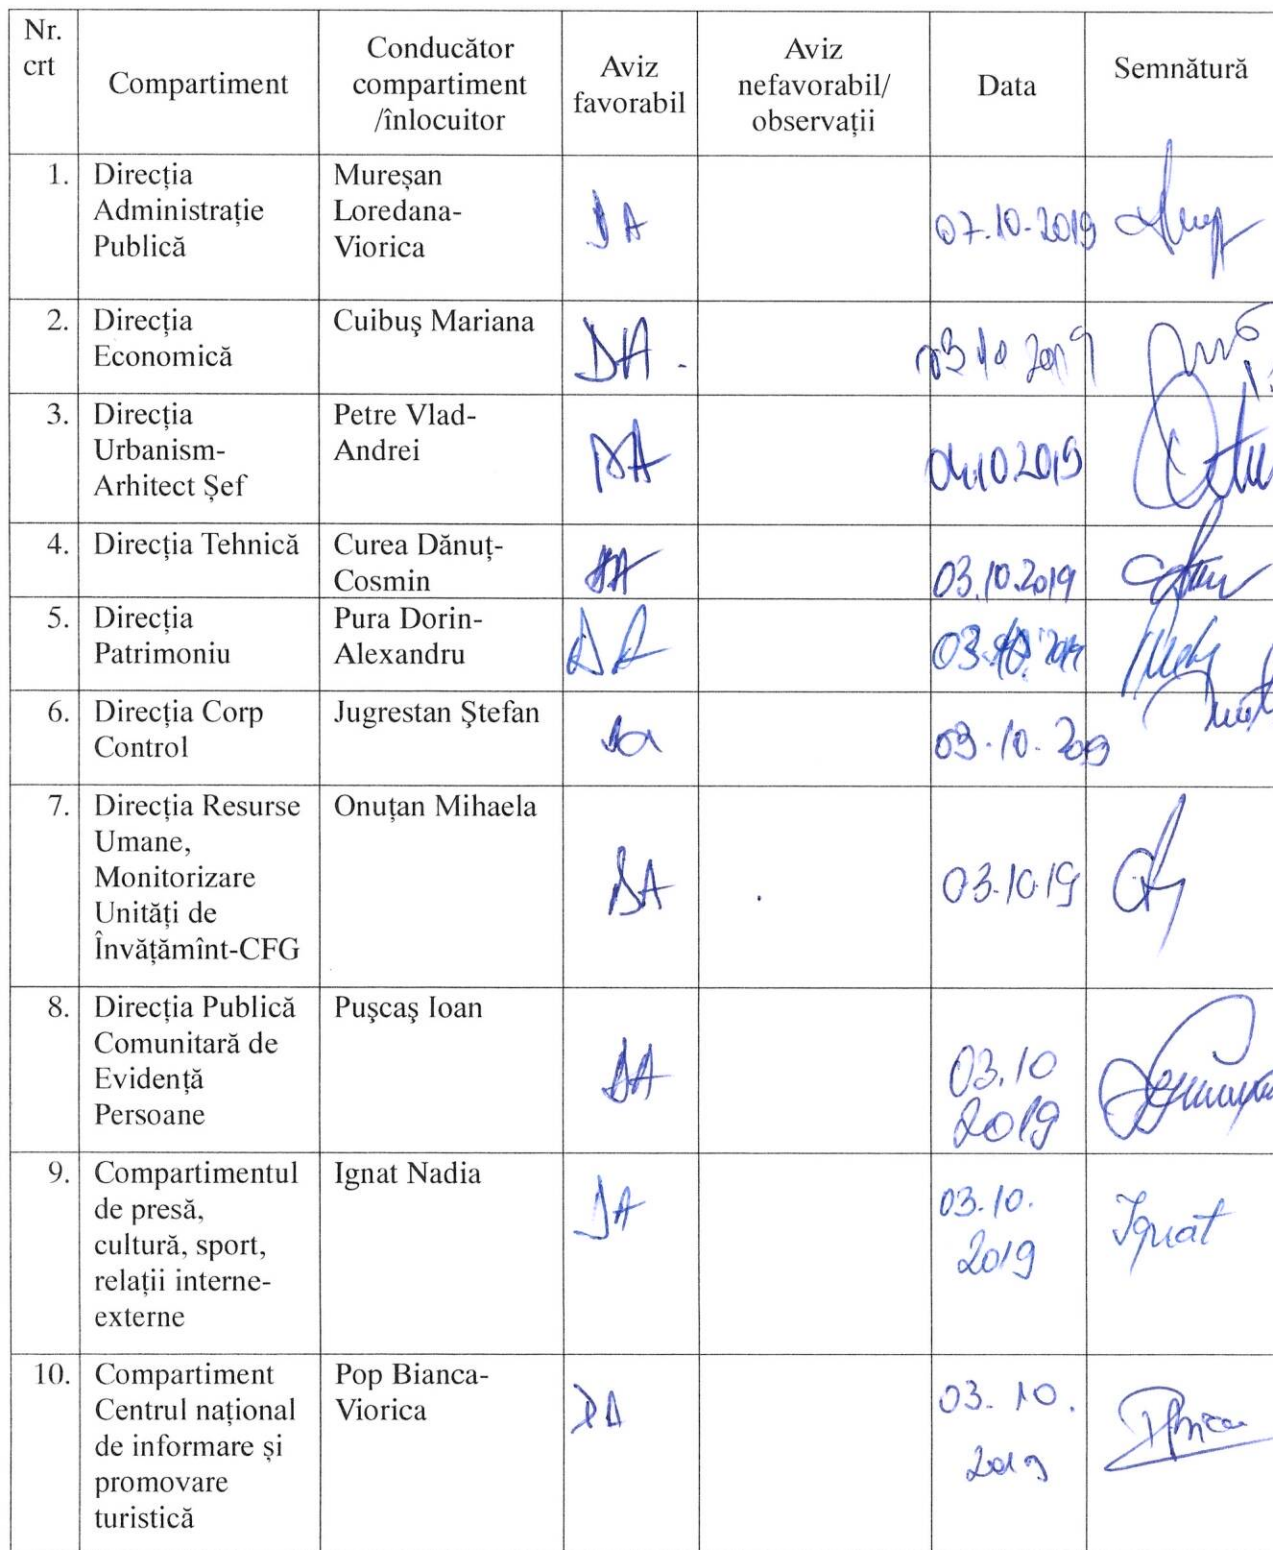 Nr. crt
Compartiment
Conducător compartiment /înlocuitor
Aviz favorabil
Aviz nefavorabil/ observații
Data
Semnătură
1.
Direcția
Administrație
Publică
Mureșan
Loredana-
Viorica
DA
07.10.2019
2.
Direcția
Economică
Cuibuş Mariana
DA.
03 10 2019
3.
Direcția
Urbanism-
Arhitect Șef
Petre Vlad-
Andrei
DA
04.10.2019
4.
Direcția Tehnică
Curea Dănuț-
Cosmin
DA
03.10.2019
5.
Direcția
Patrimoniu
Pura Dorin-
Alexandru
DA
03.10.2019
6.
Direcția Corp
Control
Jugrestan Ştefan
Da
03.10.2019
7.
Direcția Resurse
Umane,
Monitorizare
Unități de
Învățămînt-CFG
Onuțan Mihaela
DA
03.10.19
8.
Direcția Publică
Comunitară de
Evidență
Persoane
Puşcaş Ioan
DA
03.10
2019
9.
Compartimentul
de presă,
cultură, sport,
relații interne-
externe
Ignat Nadia
DA
03.10.
2019
Ignat
10.
Compartiment
Centrul național
de informare și
promovare
turistică
Pop Bianca-
Viorica
DA
03.10.
2019